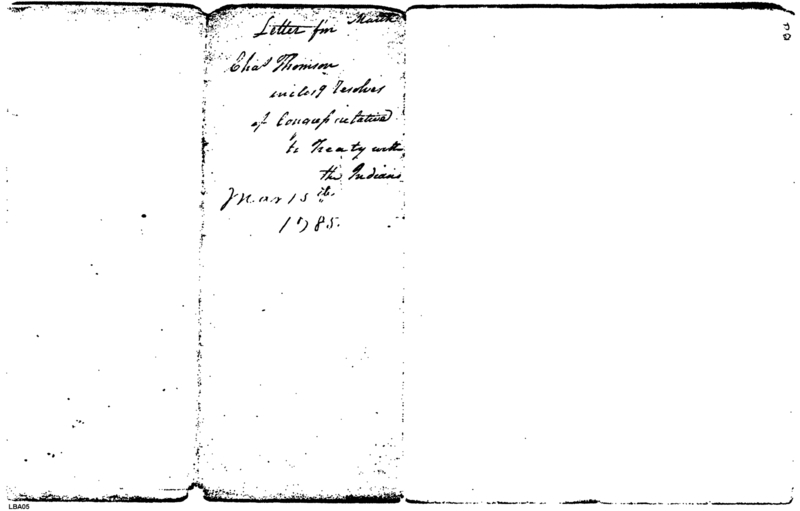 March
Letter fm
Chas Thomson
inclosg Resolves
of Congress relative
to Treaty with
the Indians
Mar 15th.
1785.
LBA05